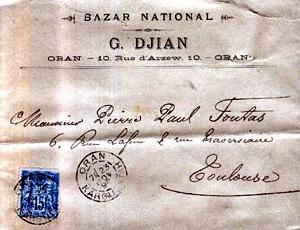 BAZAR NATIONAL
G. DJIAN
ORAN — 10, Rue d'Arzew, 10. — ORAN
Monsieur Pierre Paul Foutas
6, Rue Lafon & rue Traversière
Toulouse
ORAN
15